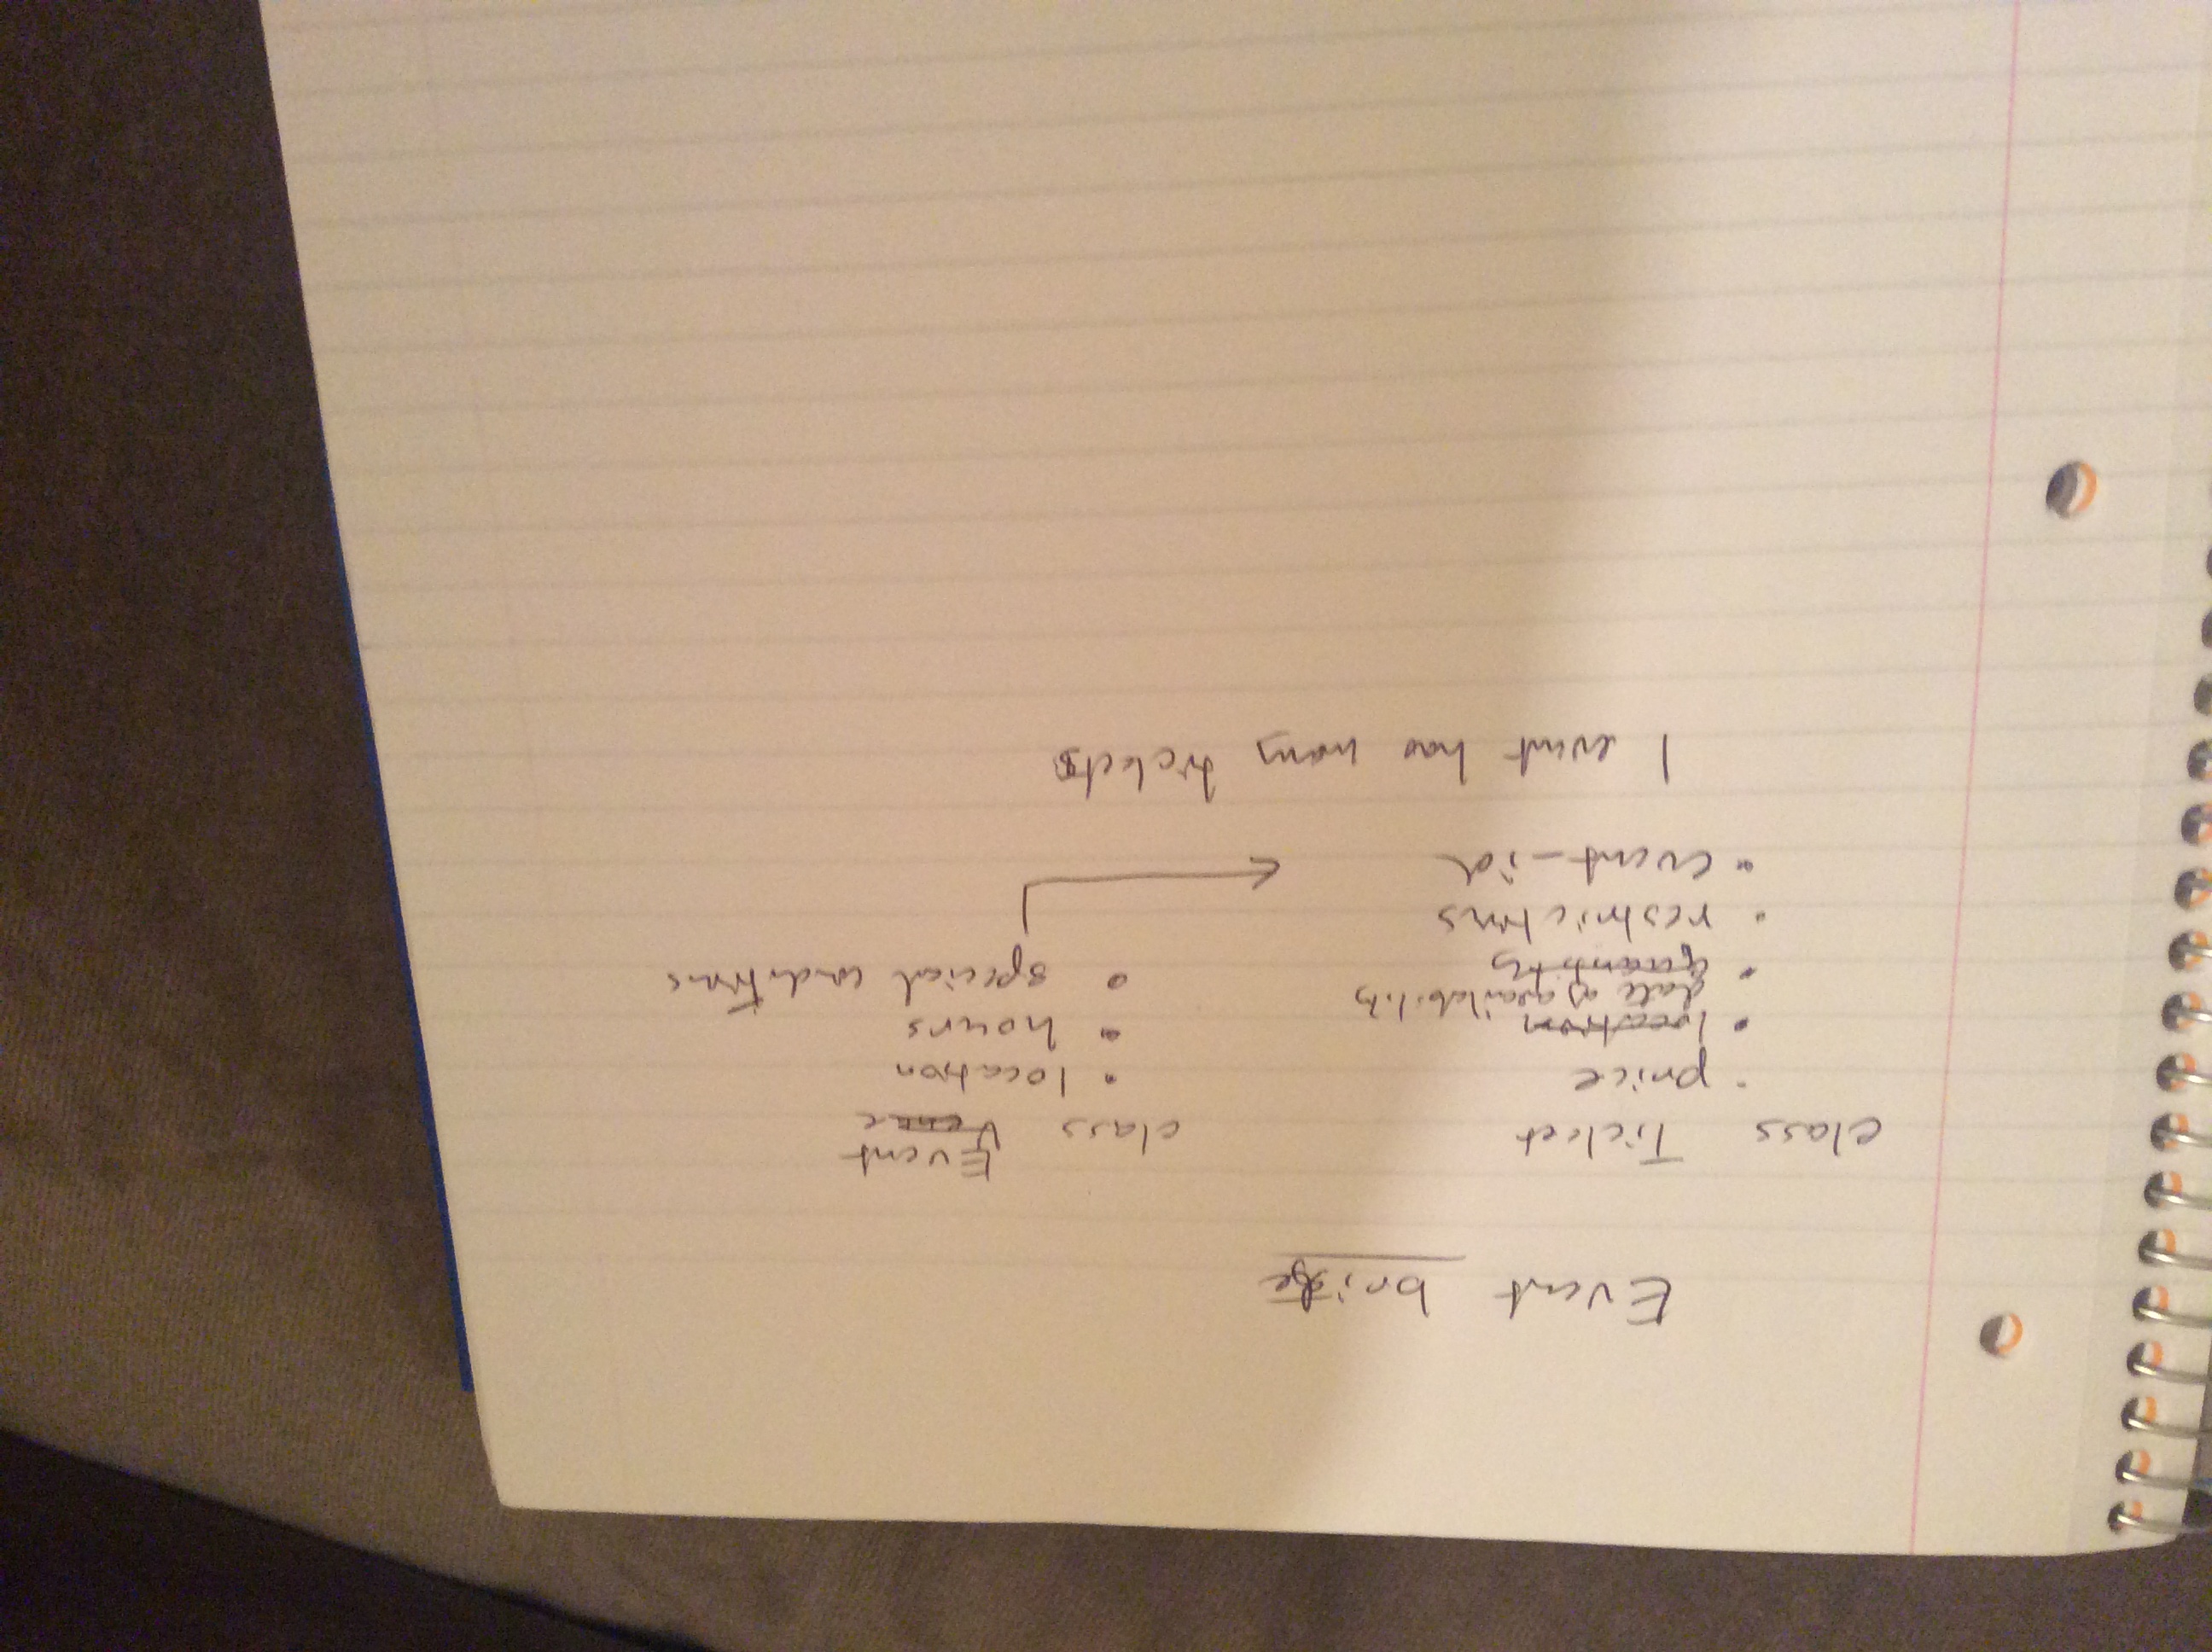 Event brite
class Ticket
• price
• location
date of availability
• quantity
• restrictions
• event_id
class Event
Venue
• location
• hours
• special conditions
1 event has many tickets